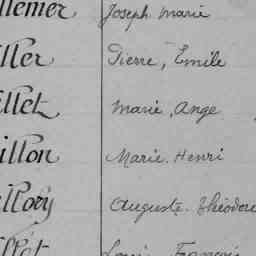 llemer Joseph Marie
ller Pierre, Emile
llet Marie, Ange
illon Marie Henri
llory Auguste Théodore
llot Louis François